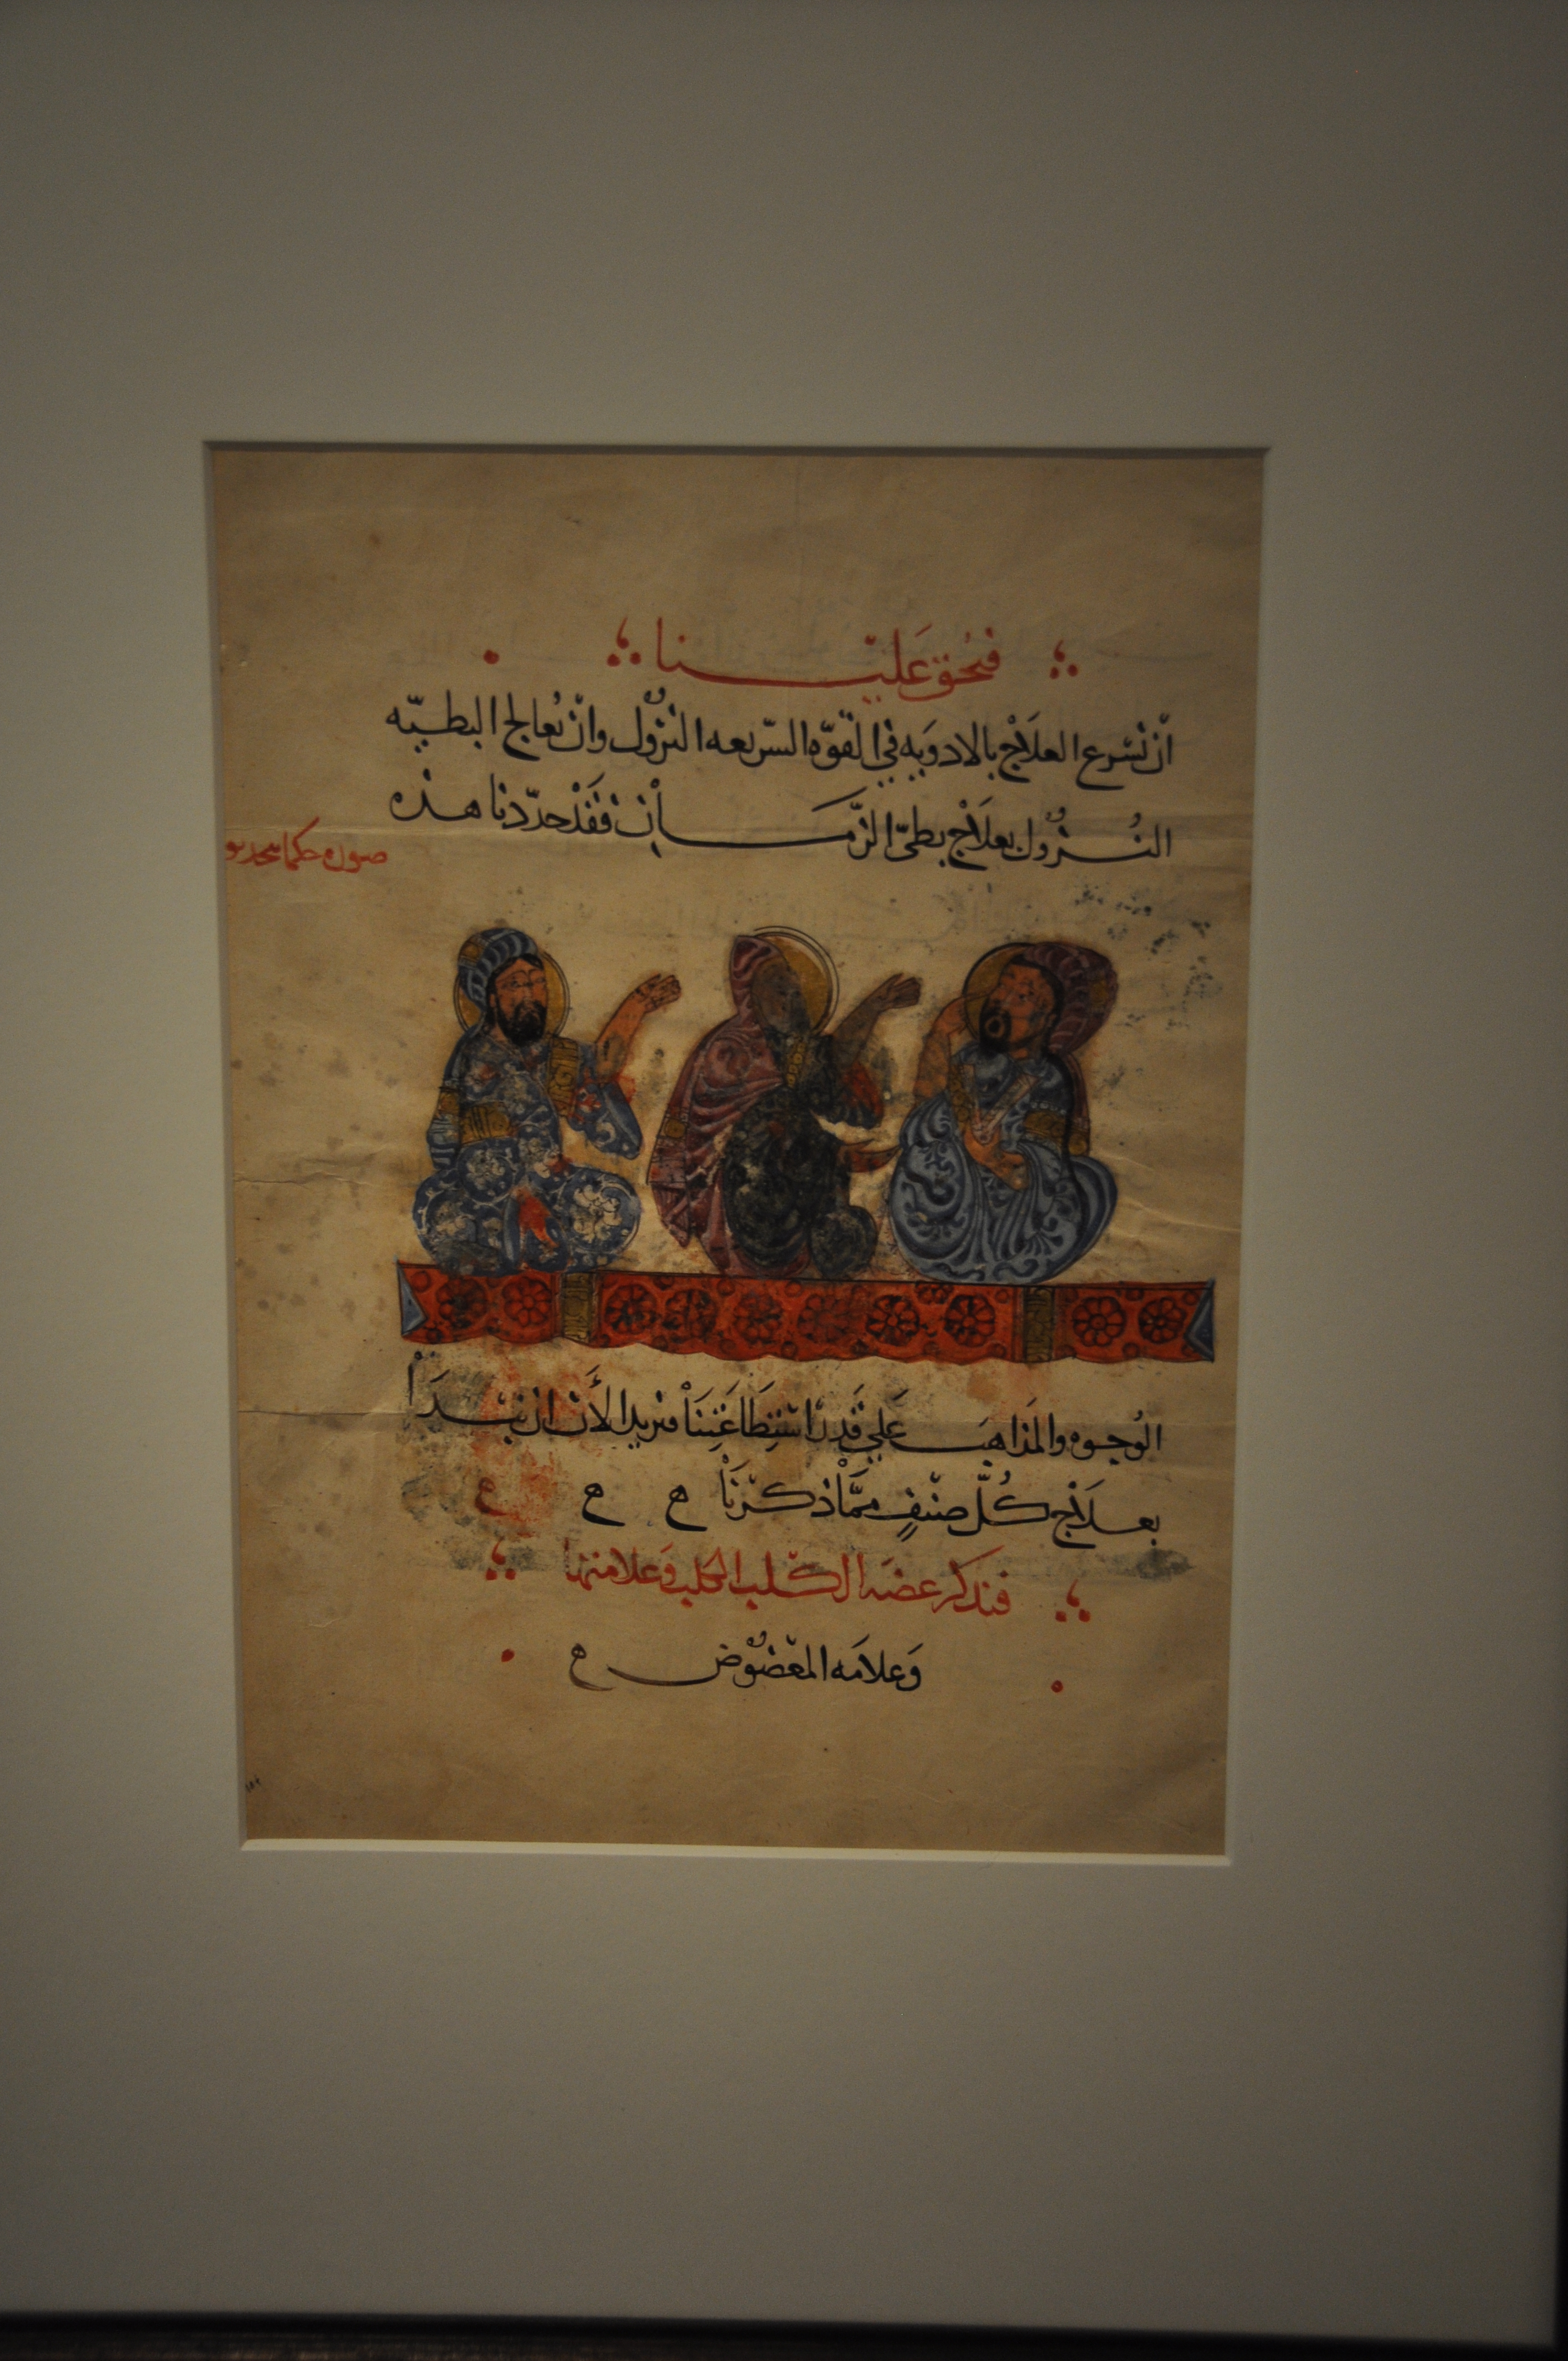 فحق علينا
ان نسرع العلاج بالادويه في القوّه السّريعه النزول وانّ نعالج البطيّه
النُزول بعلاج بطىّ الزّمان فقَدْ حدّدنا هذه
صوره حكما
الوُجوه والمَذاهبَ عَلي قَدر استطاعَتِنَا فنريد الأن ان نبْدَأ
بعلاج كُلّ صنفٍ ممَّا ذكرْنَا ه ه ه
فنذكر عضه الكلب الكلب وَعلامتها
وَعلامَه المعَضُوض ه